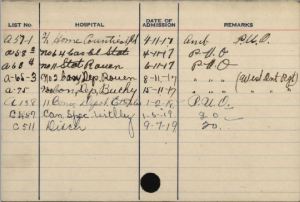 LIST NO. HOSPITAL DATE OF ADMISSION REMARKS
A 57-1 2/1 Home Counties 4-11-17 Amb P.U.O.
a 63 No 64 Cas Cl Stat 4-11-17 P.U.O
a 68 No 11 Stat Rouen 6-11-17 P.U.O
A-66-3 No 2 Con Dep Rouen 8-11-17 " " " (West Ont Rgt)
a-75 Con, Dep, Buchy 15-11-17 " " "
A 138 11 Con Depot 1-2-18 P.U.O.
C 457 Can. Spec. Witley 1-5-19 do
C 511 Disch 9-7-19 do.